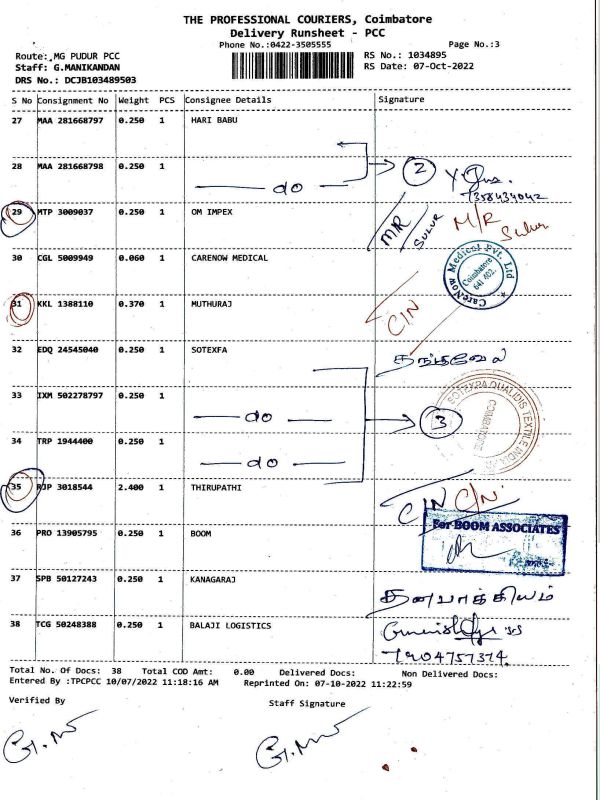 THE PROFESSIONAL COURIERS, Coimbatore
Delivery Runsheet - PCC
Phone No.:0422-3505555 Page No.:3
Route: MG PUDUR PCC RS No.: 1034895
Staff: G.MANIKANDAN RS Date: 07-Oct-2022
DRS No.: DCJB103489503
S No Consignment No Weight PCS Consignee Details Signature
27 MAA 281668797 0.250 1 HARI BABU
28 MAA 281668798 0.250 1
do 2
7358434042
29 MTP 3009037 0.250 1 OM IMPEX M/R Sulur M/R Sulur
30 CGL 5009949 0.060 1 CARENOW MEDICAL
CareNow Medical Pvt. Ltd
Coimbatore
641 402.
31 KKL 1388110 0.370 1 MUTHURAJ C/N
32 EDQ 24545040 0.250 1 SOTEXFA தங்கவேல்
33 IXM 502278797 0.250 1
do 3
SOTEXPA QUALIDIS TEXTILE INDIA
COIMBATORE
34 TRP 1944400 0.250 1
do
35 RJP 3018544 2.400 1 THIRUPATHI C/N C/N
36 PRO 13905795 0.250 1 BOOM
For BOOM ASSOCIATES
37 SPB 50127243 0.250 1 KANAGARAJ
தனபாக்கியம்
38 TCG 50248388 0.250 1 BALAJI LOGISTICS
7904757374
Total No. Of Docs: 38 Total COD Amt: 0.00 Delivered Docs: Non Delivered Docs:
Entered By :TPCPCC 10/07/2022 11:18:16 AM Reprinted On: 07-10-2022 11:22:59
Verified By Staff Signature